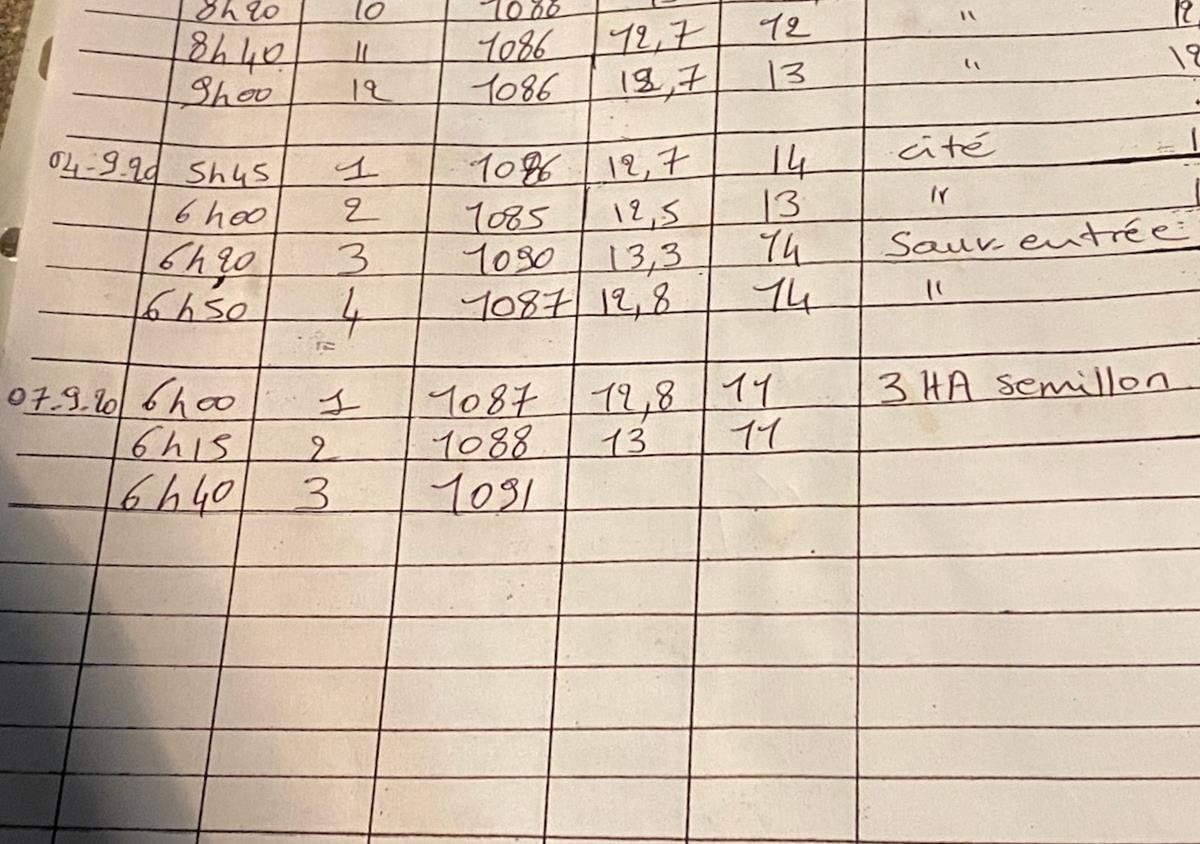 8h20 10 1086
8h40 11 1086 12,7 12 "
9h00 12 1086 12,7 13 "
04-9-20 5h45 1 1086 12,7 14 cité
6h00 2 1085 12,5 13 "
6h20 3 1090 13,3 14 Sauv-entrée
6h50 4 1087 12,8 14 "
07-9-20 6h00 1 1087 12,8 11 3 HA semillon
6h15 2 1088 13 11
6h40 3 1091